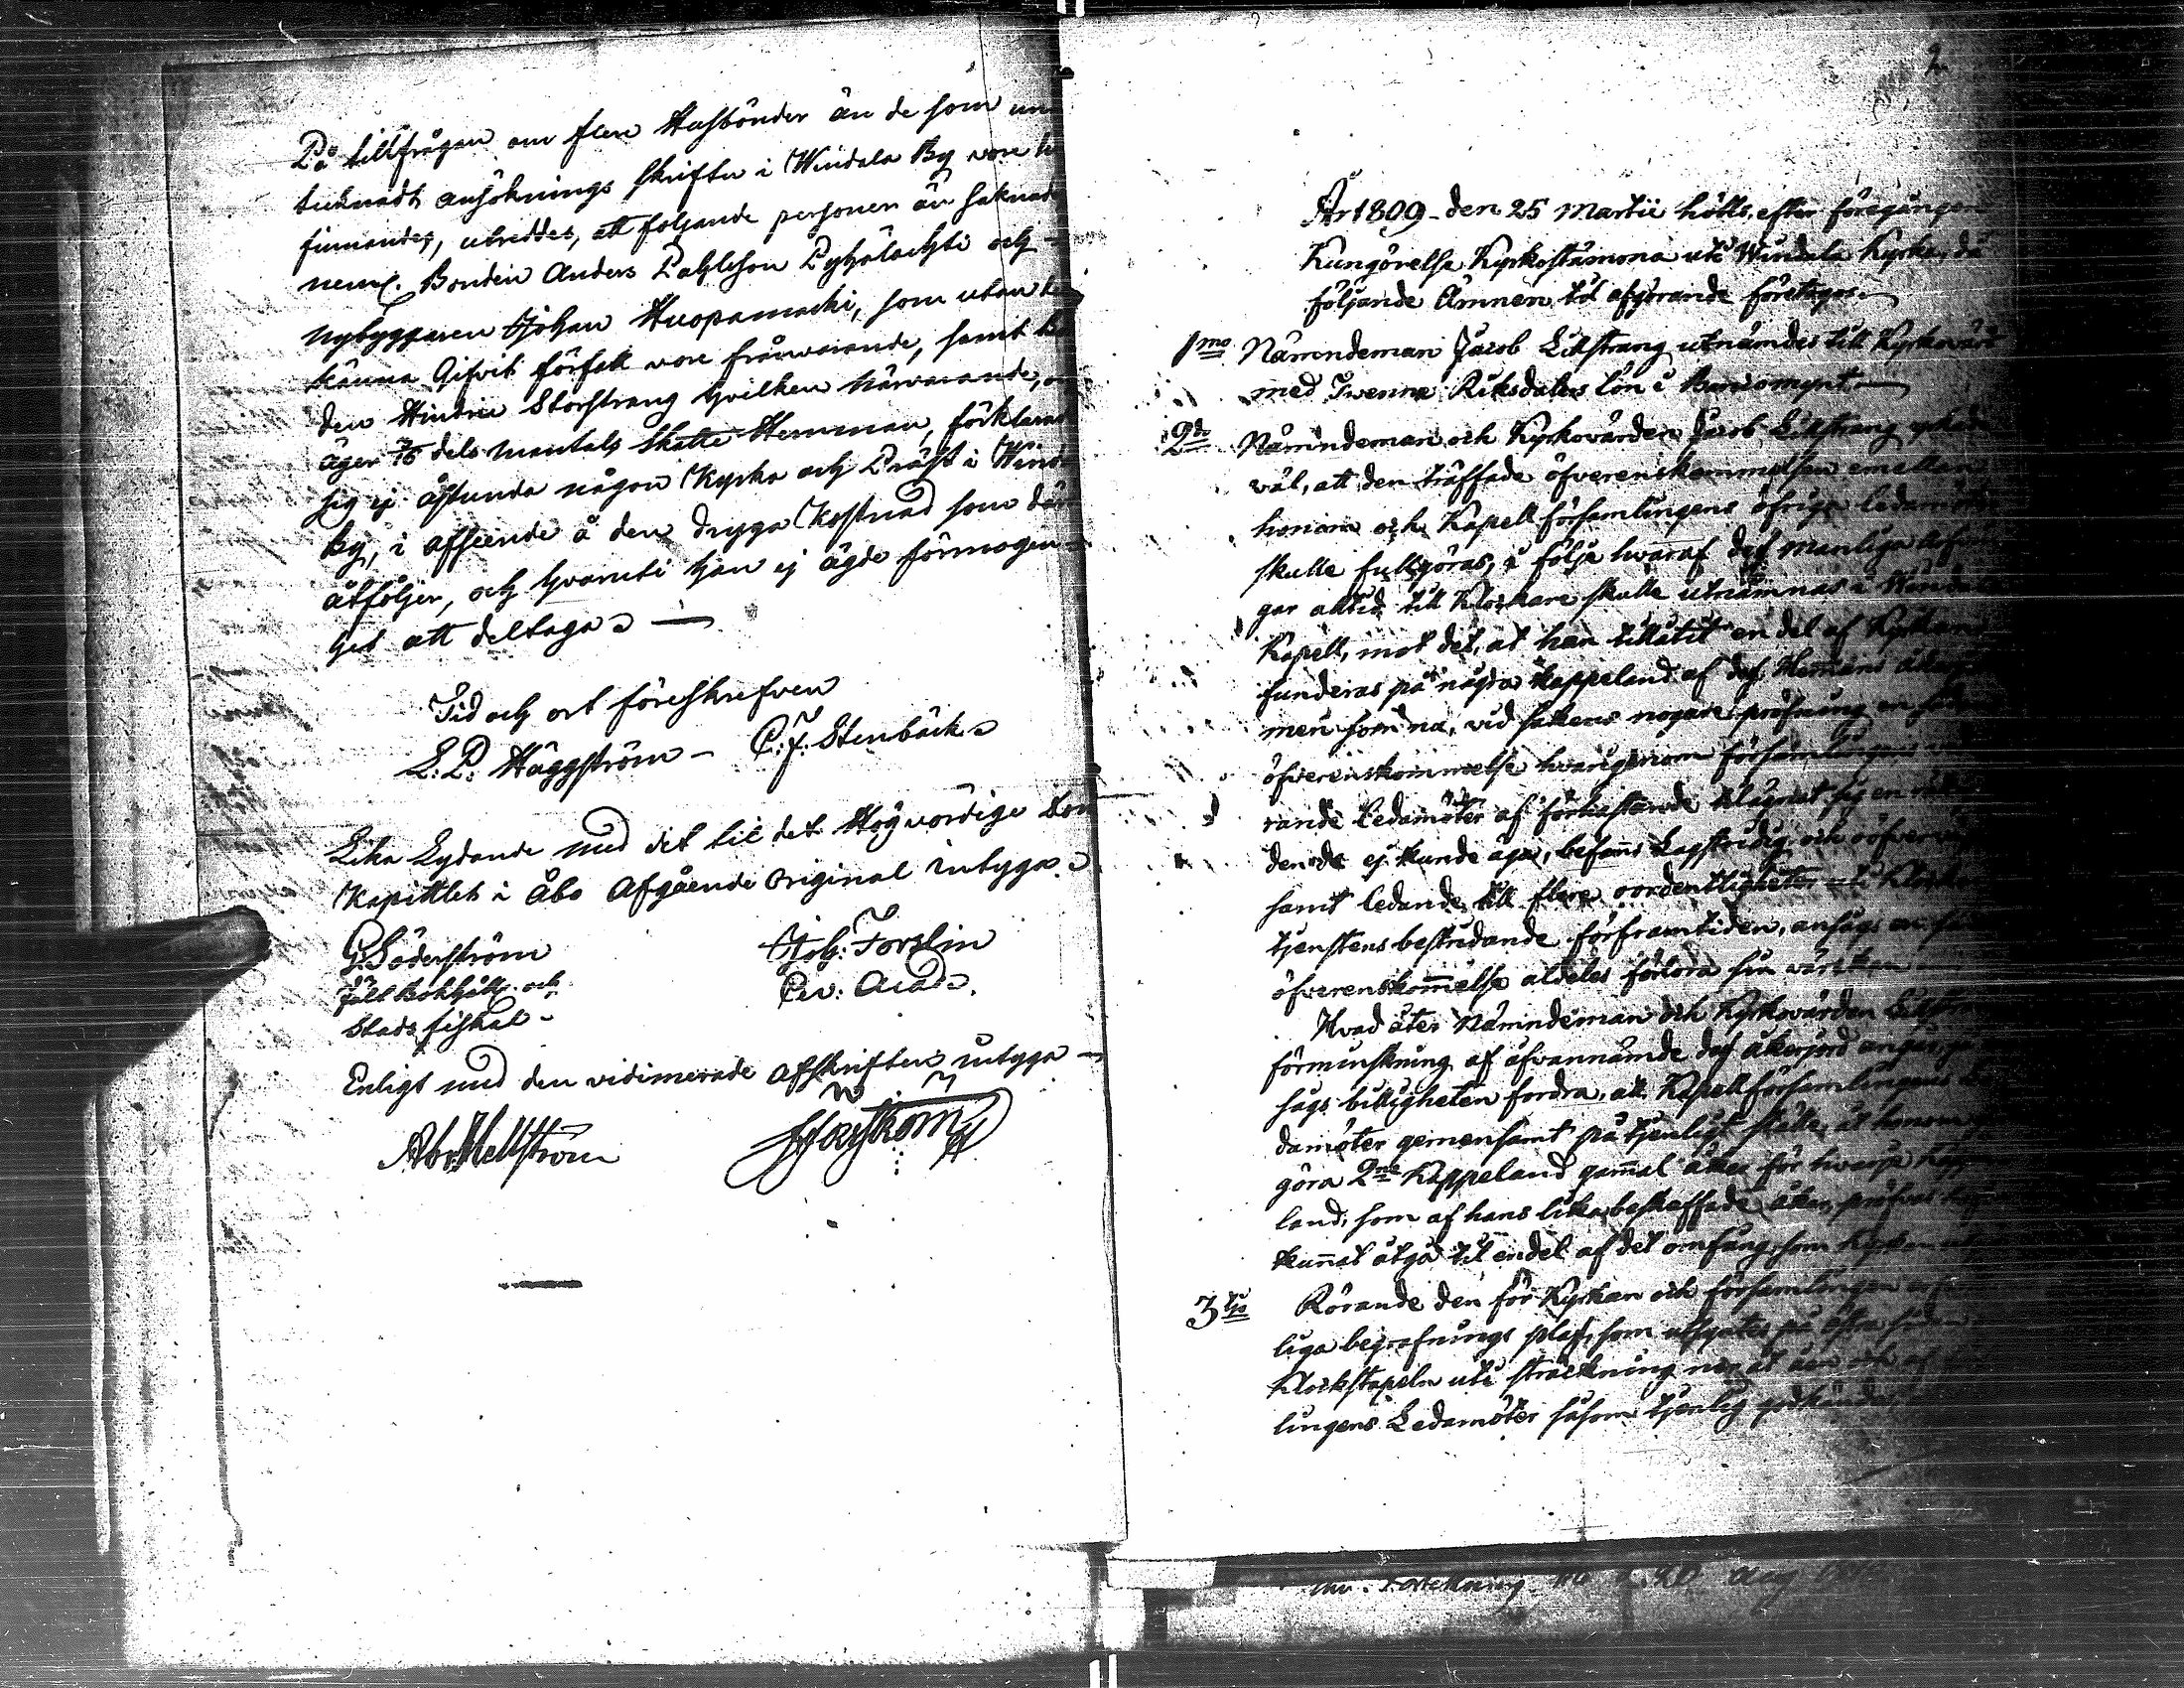 På tillfrågan om flere Husbönder än de som un
tecknadt ansöknings skriften i Windala By vore
finnandes, utreddes, att följande personer än saknade
neml. Bonden Anders Pahleson Pyhälachti och
Nybyggaren Johan Huopamacki, som utan
känna Gifvit förfall vore frånwarande, samt
den Hindric Storstrang hvilken närvarande,
äger dels mantals Skatte Hemman, förklarade
sig ej åstunda någon Kyrka och Präst i Wind
By, i afseende å den dryga Kostnad som
åtföljer, och hvaruti han ej ägde förmögen
het att deltaga
Tid och ort föreskrefven
E: P: Häggström - C: J: Stenbäck
Lika Lydande med det til det Högwördige Dom
Kapittlet i Åbo Afgående Original intyga
G: Söderström Joh: Forslin
Fält Bokhåll. och Civ: Acad.
Stads fiskal
Enligt med den vidimerade afskriften intyga
Abr. Hellström
2
År 1809 den 25 Martii hölts, efter föregången
Kungörelse Kyrkostämma uti Windala Kyrka, då
följande Ämnen til afgörande företogos.
1mo Nämndeman Jacob Lillstrang utnämdes till Kyrkovärd
med Twenne Riksdalers lön i Bancomynt
2do Nämndeman och Kyrkovärden Jacob Lillstrang yrkade
väl, att den träffade öfverenskommelsen emellan
honom och Kapell församlingens öfriga ledamöter
skulle fullgöras, i följe hvaraf dess manliga
gar alltid till Klockare skulle utnämnas i Windala
Kapell, mot det, at han tillåtit en del af Kyrkan
funderas på några kappeland af dess Hemmans åker
men som nu, vid sakens nogare pröfning en sådan
öfverenskommelse hvarigenom församlingens
rande Ledamöter af förhastande tilägnat sig en
den de ej kunde äga, befanns Lagstridig och
samt ledande till flere oordentligheter uti Klockare
tjenstens bestridande för framtiden, ansågs en sådan
öfverenskommelse aldeles förlora sin värkan
Hvad åter Nämndeman och Kyrkovärden Lillstrang
förminskning af ofvannämde dess åkerjord angår,
sågs billigheten fordra, att Kapellförsamlingens Le
damöter gemensamt på tjenligt ställe, åt honom
göra 2ne Kappeland gamal åker för hvarje Kap
land, som af hans lika beskaffade åker, pröfvas
kunnat åtgå til en del af det omfång, som Kyrkan
3tio Rörande den för Kyrkan och församlingen
liga begrafnings plats, som utsyntes på östra sidan
Klockstapeln uti sträckning ner åt åen och af
lingens Ledamöter såsom tjenlig godkändes,